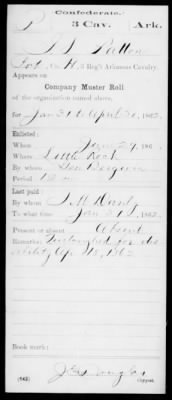 Confederate.
P 3 Cav. Ark.
J J Patton
Pvt, Co. H, 3 Reg't Arkansas Cavalry.
Appears on
Company Muster Roll
of the organization named above,
for Jan 31 to April 30, 1862.
Enlisted:
When 24, 186
Where Little Rock
By whom
Period 12 m
Last paid:
By whom J. M.
To what time Jan 31, 1862.
Present or absent Absent
Remarks: Discharged for dis
ability Apr 18, 1862
Book mark:
(642) Copyist.